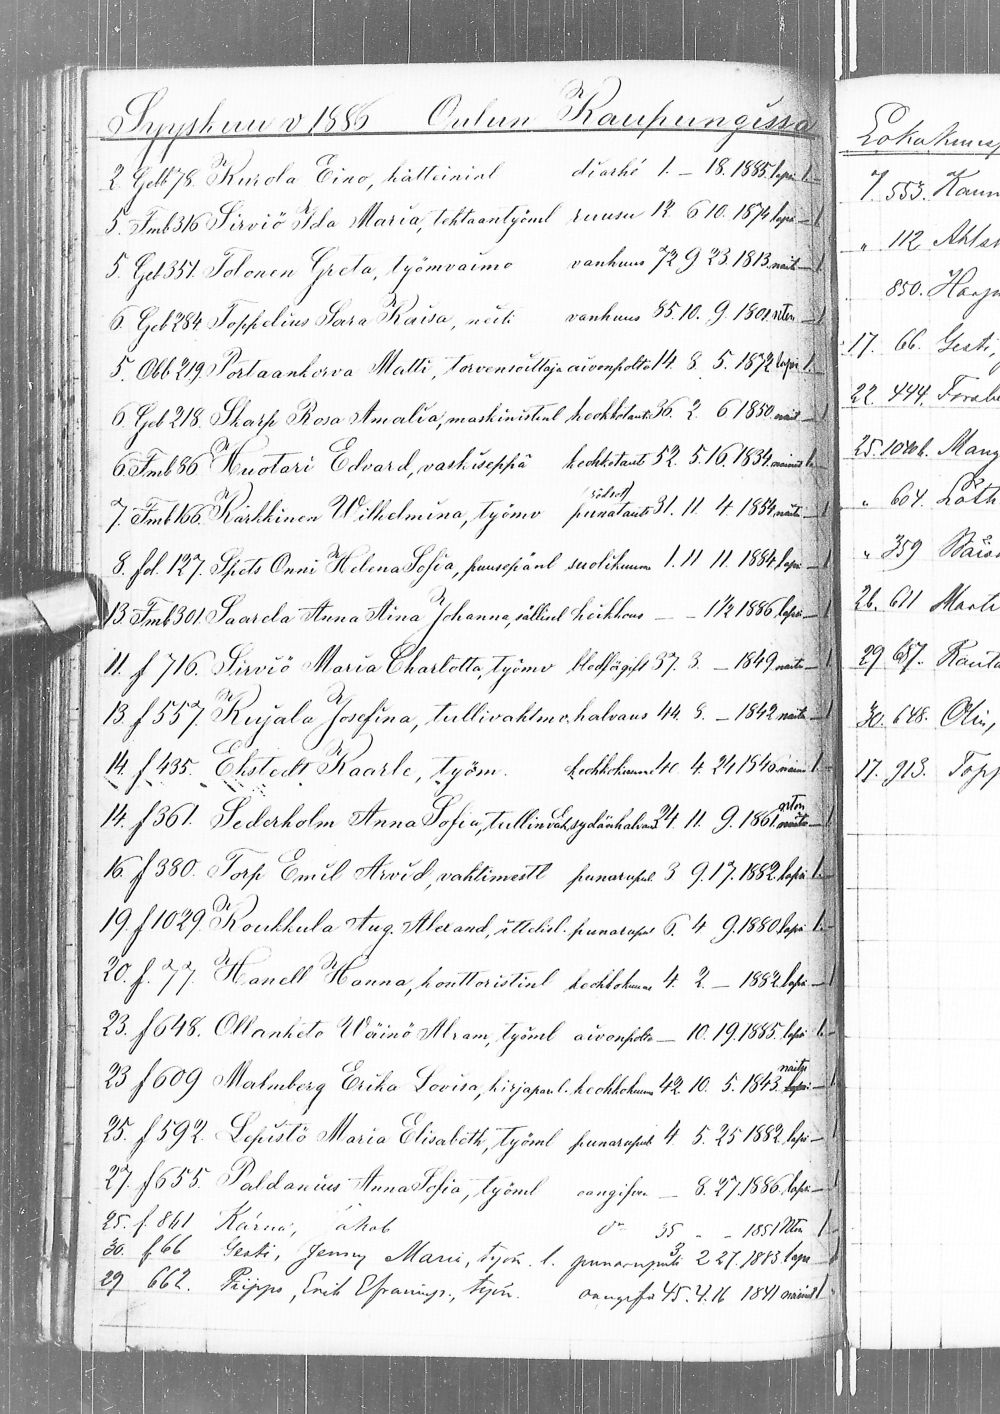 Syyskuu v 1886 Oulun Kaupungissa
2. Geb 78. Kurola Eino, kätteinial diarhé 1. – 18. 1885 lapsi 1. –
5. Tmb 316 Sirviö Ida Maria, tehtaantyöml ruusu 12. 6 10. 1874 lapsi – 1
5. Geb 351. Tolonen Greta, työmvaimo vanhuus 72 9 23. 1813. – 1
6. Geb 284 Toppelius Sara Kaisa, neiti vanhuus 85. 10. 9. 1801. – 1
5. Obb 219. Portaankorva Matti, torvensoittaja aivonpolto 14. 8 5. 1872 lapsi 1. –
6. Geb 218. Skarp Rosa Amalia, maskinistinl keuhkotauti 36. 2. 6 1850 – 1
6. Tmb 86 Huotari Edvard, vaskiseppä keuhkotauti 52. 5. 16. 1834.
7. Tmb 166. Kärkkinen Wilhelmina, työmv punatauti 31. 11. 4. 1854 – 1
8. fol. 127. Spets Onni Helena Sofia, puusepänl suolikuume 1. 11 11. 1884. lapsi – 1
13. Tmb 301. Saarela Anna Aina Johanna, sällinl heikkous – – 1½ 1886. lapsi – 1
11. f 716. Sirviö Maria Charlotta, työmv blodförgift 37. 3. – 1849 – 1
13. f 557. Kujala Josefina, tullivahtmv. halvaus 44. 8. – 1842 – 1
14. f 435. Ekstedt Kaarle, työm. keuhkokuume 4. 24 1840 1. –
14. f 361. Sederholm Anna Sofia, sydänhalvaus 24. 11. 9. 1861. – 1
16. f 380. Torp Emil Arvid, vahtimestl punarupul 3 9. 17. 1882. lapsi 1. –
19. f 1029. Koukkula Aug. Alexand, ittelisl. punarupul 6. 4 9. 1880. lapsi 1. –
20. f. 77. Hanell Hanna, konttoristinl keuhkokuume 4. 2. – 1882. lapsi – 1
23. f 648. Ollanketo Wäinö Abram, työml aivonpolto – 10. 19. 1885. lapsi 1. –
23 f 609 Malmberg Erika Lovisa, keuhkokuume 42. 10. 5. 1843. – 1
25. f 592. Lepistö Maria Elisabeth, työml punarupuli 4. 5. 25 1882. lapsi – 1
27. f 655. Paldanius Anna Sofia, työml – 8. 27. 1886. lapsi – 1
25. f 861 Kärnä, Jakob 35 „ „ 1851
30. f 66 Gesti, Jenny Maria, työn. l. punarupuli 3. 2 27. 1883 lapsi
29 662. Piippo, Erik Efraimp., työn. 45. 4. 16 1841
Lokakuussa
7. 553. Kaun
„ 112 Ahlst
850. Harju
17. 66. Gesti,
22. 444. Forsbe
25. 1040 b. Mang
„ 604. Löth
„ 359
26. 611 Mart
29. 657. Rauta
30. 648. Olin,
17. 913. Topp